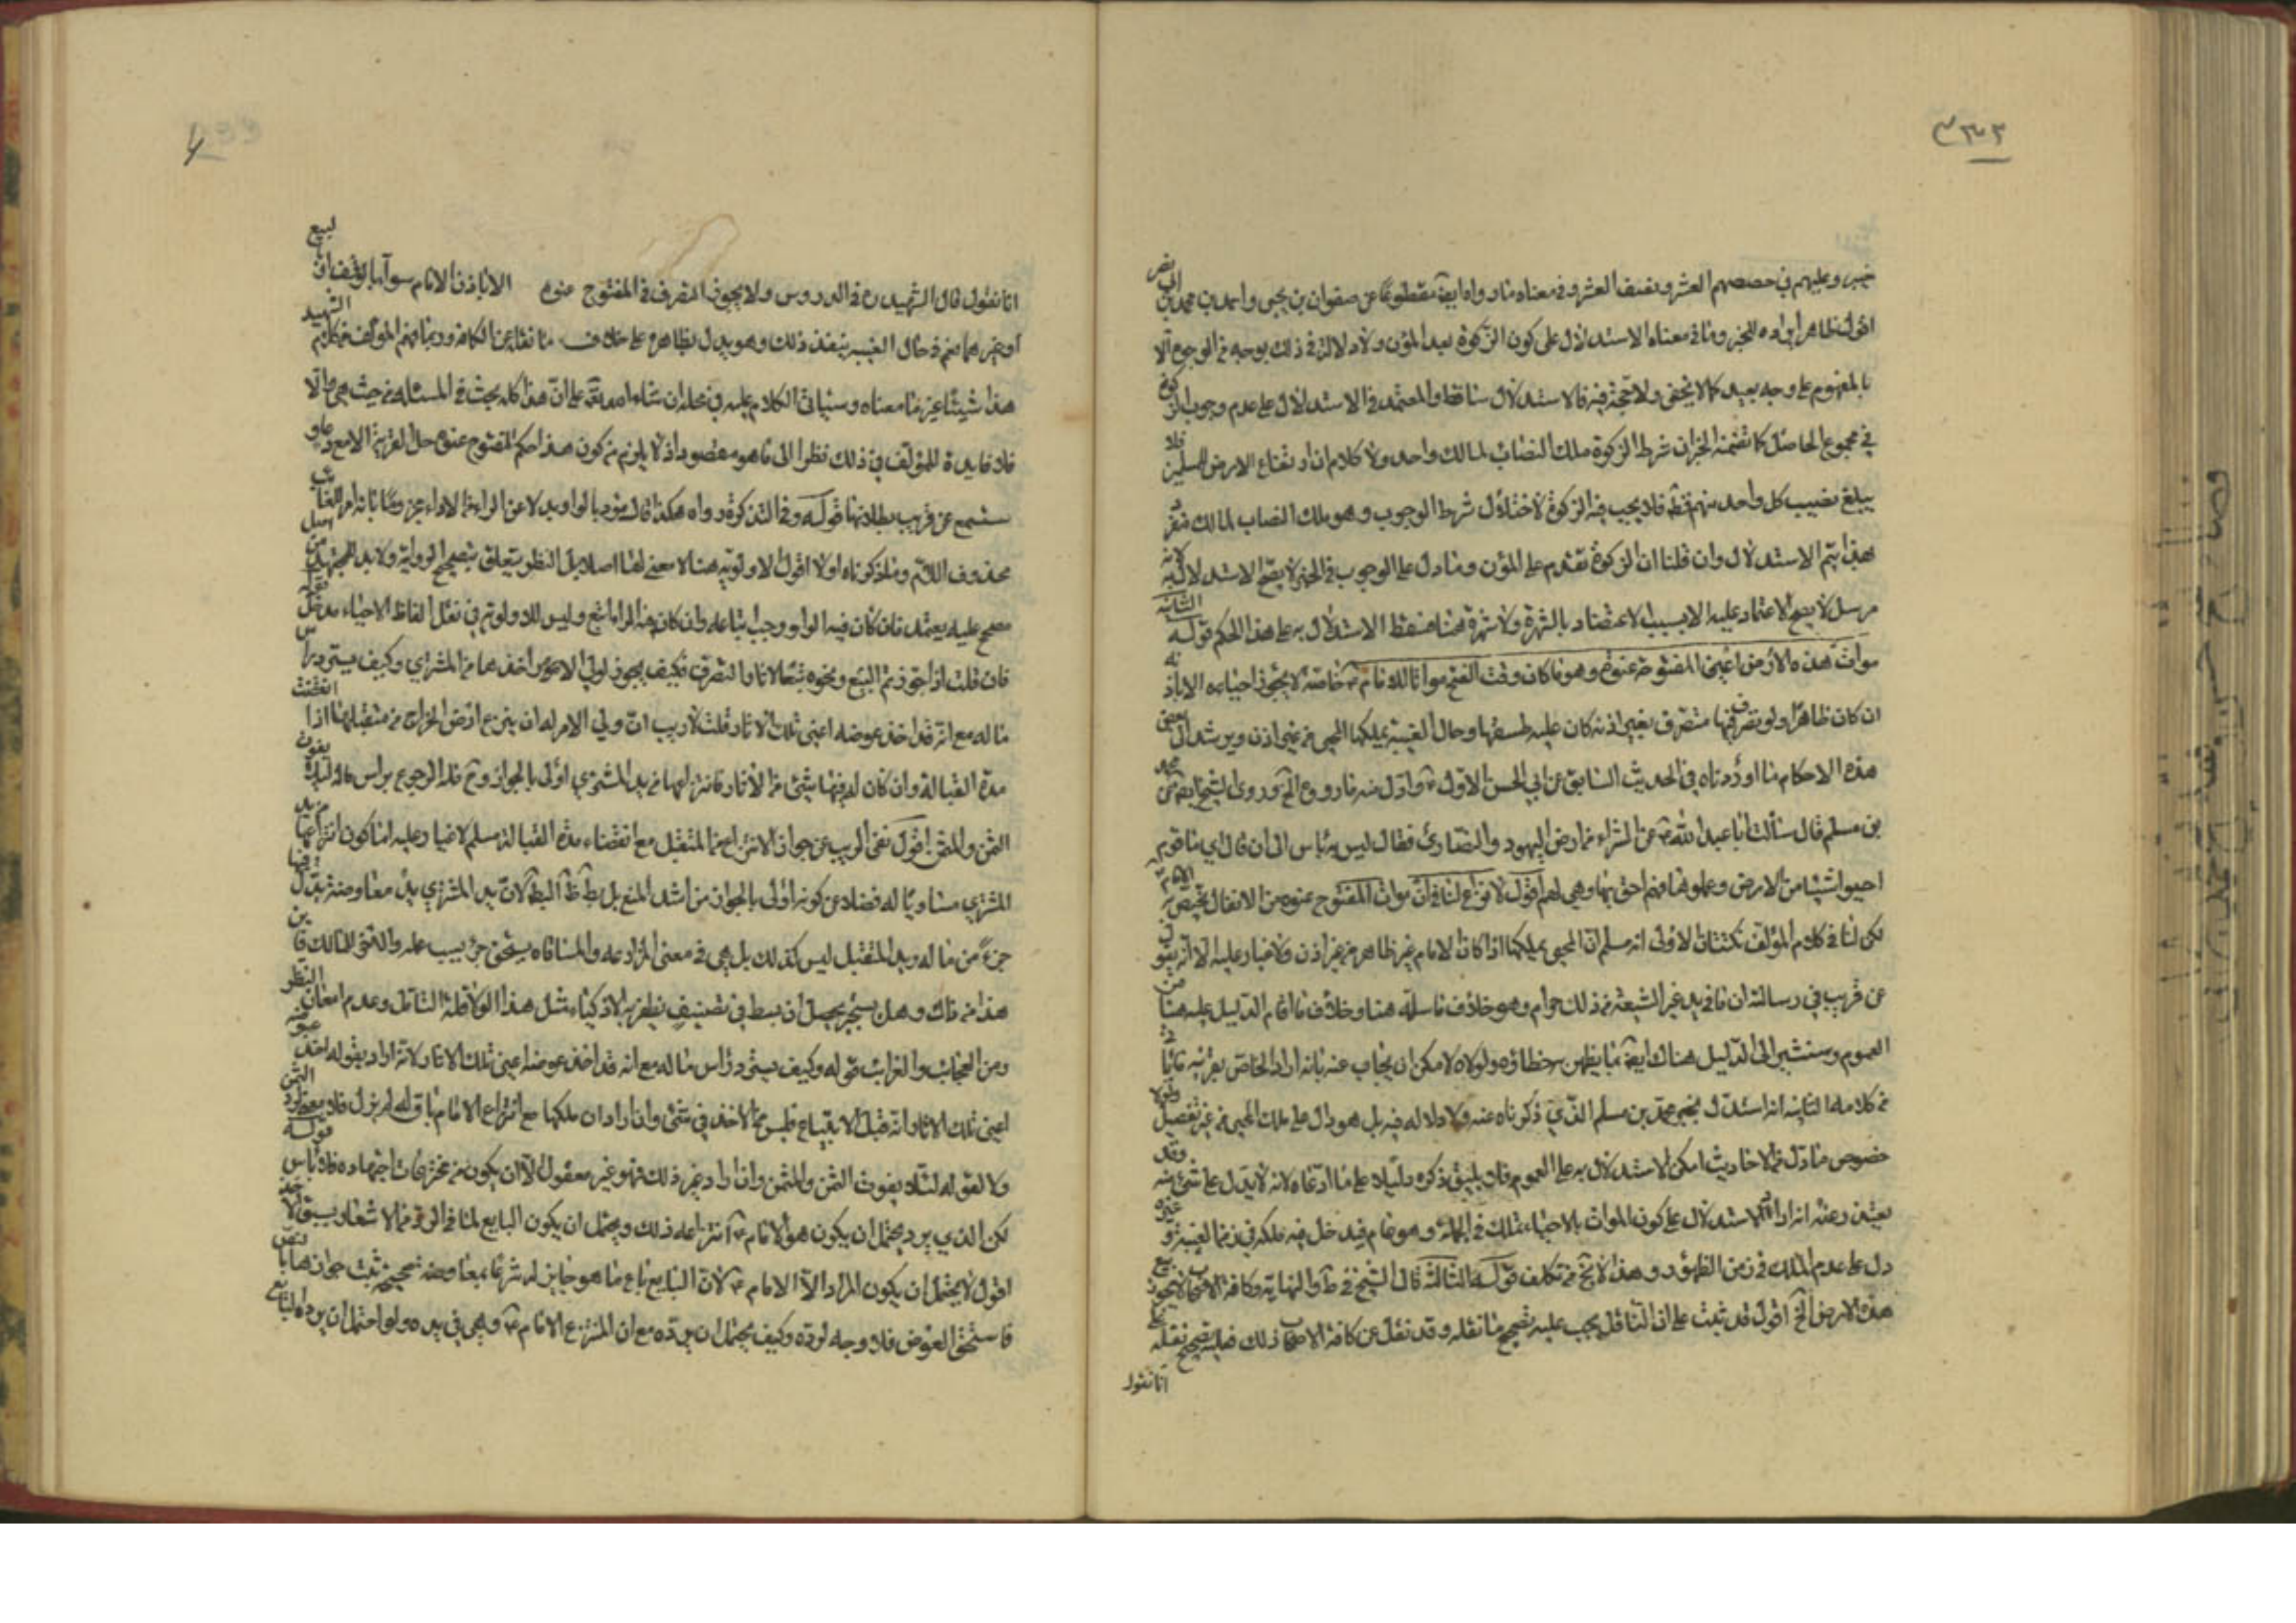 ٣٦٣
خيبر وعليهم في حصصهم العشر ونصف العشر وفي معناه ما رواه ايضا مقطوعا عن صفوان بن يحيى واحمد بن محمد بن ابي نصر
اقول ظاهر ايراده للخبر وما في معناه الاستدلال على كون الزكوة بعد المؤن ولا دلالة في ذلك بوجه من الوجوه الا
بالمفهوم على وجه بعيد كما لا يخفى ولا حجة فيه فالاستدلال ساقط والمعتمد في الاستدلال على عدم وجوب الزكوة
في مجموع الحاصل كما تضمنه الخبر ان شرط الزكوة ملك النصاب لمالك واحد ولا كلام ان ارتفاع الارض للمسلمين فلا
يبلغ نصيب كل واحد منهم قط فلا يجب فيه الزكوة لاختلال شرط الوجوب وهو ملك النصاب لمالك متفرد
هذا يتم الاستدلال وان قلنا ان الزكوة تقدم على المؤن وما دل على الوجوب في الخبر لا يصح الاستدلال به لانه
مرسل لا يصح الاعتماد عليه الا بسبب الاعتضاد بالشهرة ولا شهرة هنا فسقط الاستدلال به على هذا الحكم قوله الثانية
موات هذه الارض اعني المفتوحة عنوة وهو ما كان وقت الفتح مواتا للامام ع خاصة لا يجوز احياءه الا باذنه
ان كان ظاهرا ولو تصرف فيها متصرف بغير اذنه كان عليه طسقها وحال الغيبة يملكها المحيي من غير اذن ويرشد الى بعض
هذه الاحكام ما اوردناه في الحديث السابق عن ابي الحسن الاول ع وادل منه ما روي الخ وروى الشيخ ايضا عن محمد
بن مسلم قال سألت ابا عبد الله ع عن الشراء من ارض اليهود والنصارى فقال ليس به باس الى ان قال اي ما قوم
احيوا شيئا من الارض وعملوها فهم احق بها وهي لهم اقول لا نزاع لنا في ان موات المفتوح عنوة من الانفال يختص به الامام ع
لكن لنا في كلام المؤلف نكتتان الاولى انه مسلم ان المحيي يملكها اذا كان الامام غير ظاهر من غير اذن ولا غبار عليه الا انه
عن قريب في رسالته ان ما في يد غير الشيعة من ذلك حرام وهو خلاف ما سلمه هنا وخلاف ما اقام الدليل عليه هنا من
العموم وسنشير الى الدليل هناك ايضا بما يظهر خطاؤه ولولاه لامكن ان يجاب عنه بانه اراد الخاص بقرينة ما ياتي
من كلامه الثانية انه استدل بخبر محمد بن مسلم الذي ذكرناه عنه ولا دلاله فيه بل هو دال على ملك المحيي من غير تفصيل
خصوص ما دل من الاحاديث امكن الاستدلال به على العموم فلا يليق ذكره دليلا على ما ادعاه لانه لا يدل على شيء منه وقد
يعتذر عنه انه اراد الاستدلال على كون الموات بالاحياء تملك في الجملة وهو عام فيدخل فيه ملكه في زمن الغيبة و
دل على عدم الملك في زمن الظهور وهذا لا يخ من تكلف قوله الثالثة قال الشيخ في ط والنهاية وكافة الاصحاب لا يجوز بيع
هذه الارض الخ اقول قد ثبت على ان الناقل يجب عليه تصحيح ما نقله وقد نقل عن كافة الاصحاب ذلك فعليه تصحيح نقله
انا نقول
انا نقول قال الشهيد ره في الدروس ولا يجوز التصرف في المفتوح عنوة الا باذن الامام سواء بالوقف او بالبيع
او غيرهما نعم في حال الغيبة ينفذ ذلك وهو يدل بظاهره على خلاف ما نقله عن الكافة وربما فهم المؤلف من كلام الشهيد
هذا شيئا غير ما معناه وسياتي الكلام عليه في محله ان شاء الله تعالى على ان هذا كله بحث في المسئلة من حيث هي والا
فلا فايدة للمؤلف في ذلك نظرا الى ما هو مقصود اذ لا يلزم من كون هذا حكم المفتوح عنوة حل القرية الا مع
ستسمع عن قريب بطلانها قوله وفي التذكرة رواه هكذا قال يؤد بالواو بدلا عن الراء
محذوف اللام وما ذكرناه اولا اقول الاولوية هنا لا معنى لها اصلا بل النظر يتعلق بتصحيح الرواية ولا بد للمجتهد من اصل
مصحح عليه يعتمد فان كان فيه الواو وجب اتباعه وان كان فيه الراء اتبع وليس للاولوية في نقل الفاظ الاحياء مدخل
فان قلت اذا جوزتم البيع ونحوه تبعا للاثار والتصرف فكيف يجوز لولي الامر اخذها من المشتري وكيف يسترد راس
ماله مع انه قد اخذ عوضه اعني تلك الاثار قلت لا ريب ان ولي الامر له ان ينزع ارض الخراج من متقبلها اذا انقضت
مدة القبالة وان كان له فيها شيئ من الاثار فانتزاعها من يد المشتري اولى بالجواز وح فله الرجوع براس ماله لئلا يفوت
الثمن والمثمن اقول نفي الريب عن جواز الانتزاع من المتقبل مع انقضاء مدة القبالة مسلم لا غبار عليه اما كون انتزاعها من يد
المشتري مساويا له فضلا عن كونه اولى بالجواز من اشد المنع بل بط ظ البط لان يد المشتري يد معاوضة بذل فيها
جزءا من ماله ويد المتقبل ليس كذلك بل هي في معنى المزارعه والمساقاه يستحق جزء بسبب عمله والثمن للمالك فاين
هذا من ذاك وهل يستجر محصل ان يسطر في تصنيف ينظر به الاذكياء مثل هذا لولا قلة التامل وعدم امعان النظر
ومن العجائب والغرائب قوله وكيف يسترد راس ماله مع انه قد اخذ عوضه اعني تلك الاثار لانه اراد بقوله اخذ عوضه
اعني تلك الاثار انه قبل الابتياع فليس من الاخذ في شيء وان اراد ان ملكها مع انتزاع الامام باق له لم يزل فلا معنى لرد الثمن
ولا لقوله لئلا يفوت الثمن والمثمن وان اراد غير ذلك فهو غير معقول الا ان يكون من مخترعات اجتهاده فلا باس قوله
لكن الذي يرد يحتمل ان يكون هو الامام ع لانتزاعه ذلك ويحتمل ان يكون البايع لما في الرد من الاشعار بسبق الاخذ
اقول لا يحتمل ان يكون المراد الا الامام ع لان البايع باع ما هو جايز له شرعا بمعاوضه صحيحة ثبت جوازها بالنص
فاستحق العوض فلا وجه لرده وكيف يحتمل ان يرده مع ان المنتزع الامام ع وهي في يده ولو احتمل ان يرده البايع